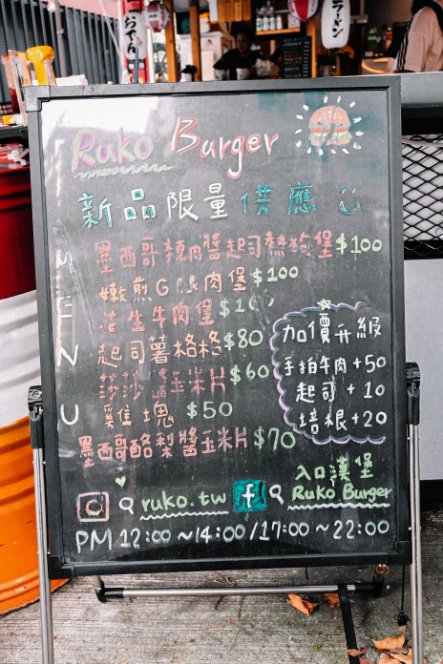 おでん
ラーメン
Ruko Burger
新品限量供應
MENU
墨西哥辣肉醬起司熱狗堡 $100
嫩煎 肉堡 $100
花生牛肉堡
起司薯格格 $80
莎莎醬玉米片 $60
雞塊 $50
墨西哥酪梨醬玉米片 $70
加價升級
手拍牛肉 +50
起司 + 10
培根 +20
ruko.tw
f
入口漢堡
Ruko Burger
PM 12:00~14:00/17:00~22:00